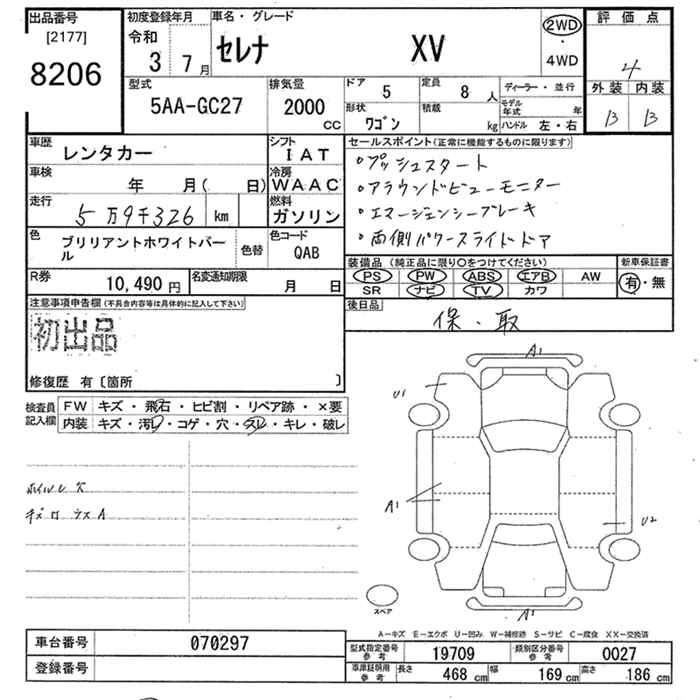 出品番号
[2177]
8206
初度登録年月
令和
3 7月
車名・グレード
セレナ XV
2WD
・
4WD
評価点
4
外装 内装
B B
型式
5AA-GC27
排気量
2000
CC
ドア
5
定員
8人
形状
ワゴン
積載
kg
ディーラー・並行
モデル年式 年
ハンドル 左・右
車歴
レンタカー
シフト
IAT
車検
年 月( 日)
冷房
WAAC
走行
5万9千326 km
燃料
ガソリン
色
ブリリアントホワイトパール
色替
色コード
QAB
R券
10,490 円
名変通知期限
月 日
セールスポイント(正常に機能するものに限ります)
・プッシュスタート
・アラウンドビューモニター
・エマージェンシーブレーキ
・両側パワースライドドア
装備品(純正品に限り○をつけてください)
PS PW ABS エアB AW
SR ナビ TV カワ
新車保証書
有・無
後日品
保・取
注意事項申告欄(不具合内容等は具体的に記入して下さい)
初出品
修復歴 有〔箇所 〕
検査員記入欄
FW キズ・飛石・ヒビ割・リペア跡・×要
内装 キズ・汚れ・コゲ・穴・スレ・キレ・破レ
ホイルレス
キズロウスA
A1
U1
A1
U2
A1
スペア
A-キズ E-エクボ U-凹み W-補修跡 S-サビ C-腐食 XX-交換済
車台番号
070297
登録番号
型式指定番号
参考
19709
類別区分番号
参考
0027
車庫証明用
参考
長さ 468 cm 幅 169 cm 高さ 186 cm